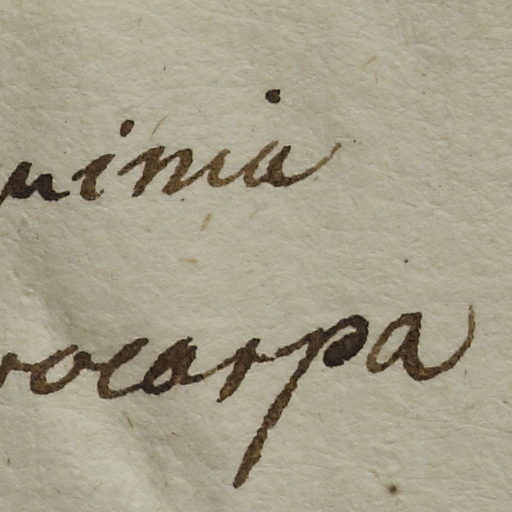 uinia
rocarpa